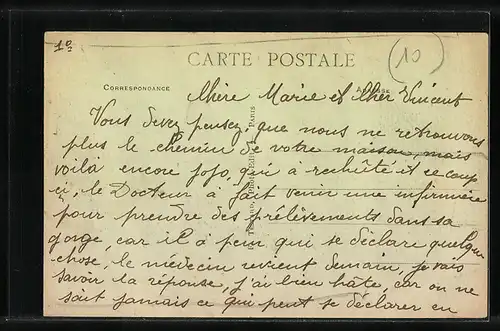 1º
10
CARTE POSTALE
CORRESPONDANCE
Chère Marie et Cher Vincent
Vous devez pensez, que nous ne retrouvons
plus le chemin de votre maison, mais
voilà encore jojo, qui à rechûté et ce coup
ci, le Docteur à fait venir une infirmière
pour prendre des prélèvements dans sa
gorge, car il à peur qui se déclare quelque
chose, le médecin revient demain, je vais
savoir la réponse, j'ai bien hâte, car on ne
sait jamais ce qui peut se déclarer en
PARIS